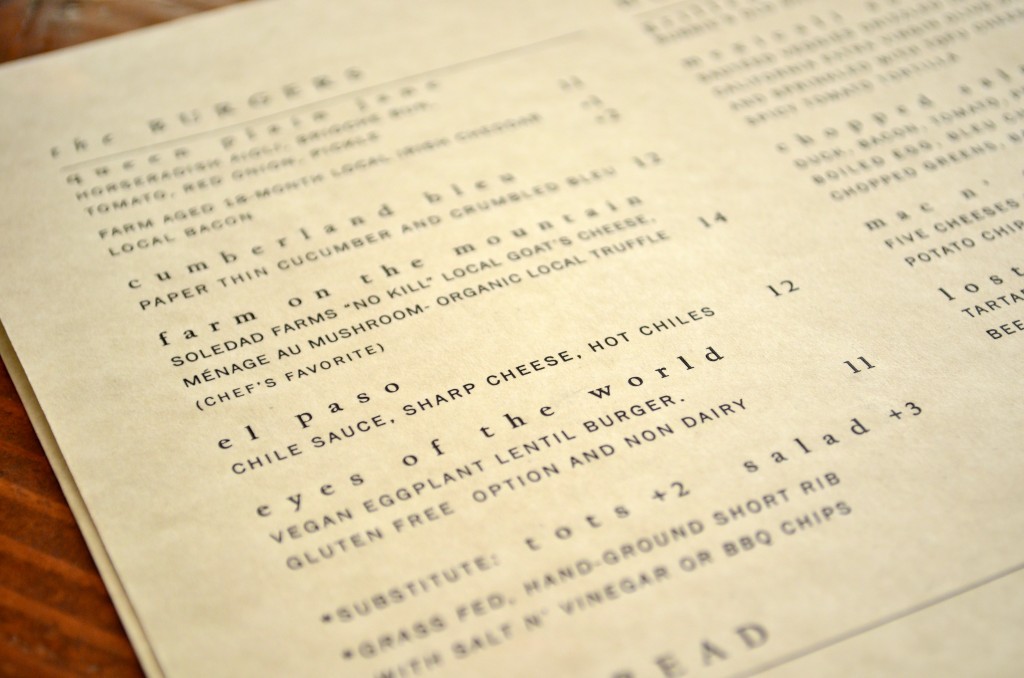 the BURGERS
queen plain jane 11
HORSERADISH AIOLI, BRIOCHE BUN,
TOMATO, RED ONION, PICKLE
FARM AGED 18-MONTH LOCAL IRISH CHEDDAR +2
LOCAL BACON
cumberland bleu 12
PAPER THIN CUCUMBER AND CRUMBLED BLEU
farm on the mountain 14
SOLEDAD FARMS "NO KILL" LOCAL GOAT'S CHEESE,
MÉNAGE AU MUSHROOM- ORGANIC LOCAL TRUFFLE
(CHEF'S FAVORITE)
el paso 12
CHILE SAUCE, SHARP CHEESE, HOT CHILES
eyes of the world 11
VEGAN EGGPLANT LENTIL BURGER.
GLUTEN FREE OPTION AND NON DAIRY
*SUBSTITUTE: tots +2 salad +3
*GRASS FED, HAND-GROUND SHORT RIB
WITH SALT N' VINEGAR OR BBQ CHIPS
AND SPRINKLED WITH
SPICY TOMATO TORTILLA
chopped
DUCK, BACON, TOMATO,
BOILED EGG, BLEU
CHOPPED GREENS,
mac n'
FIVE CHEESES
POTATO CHIP
lost